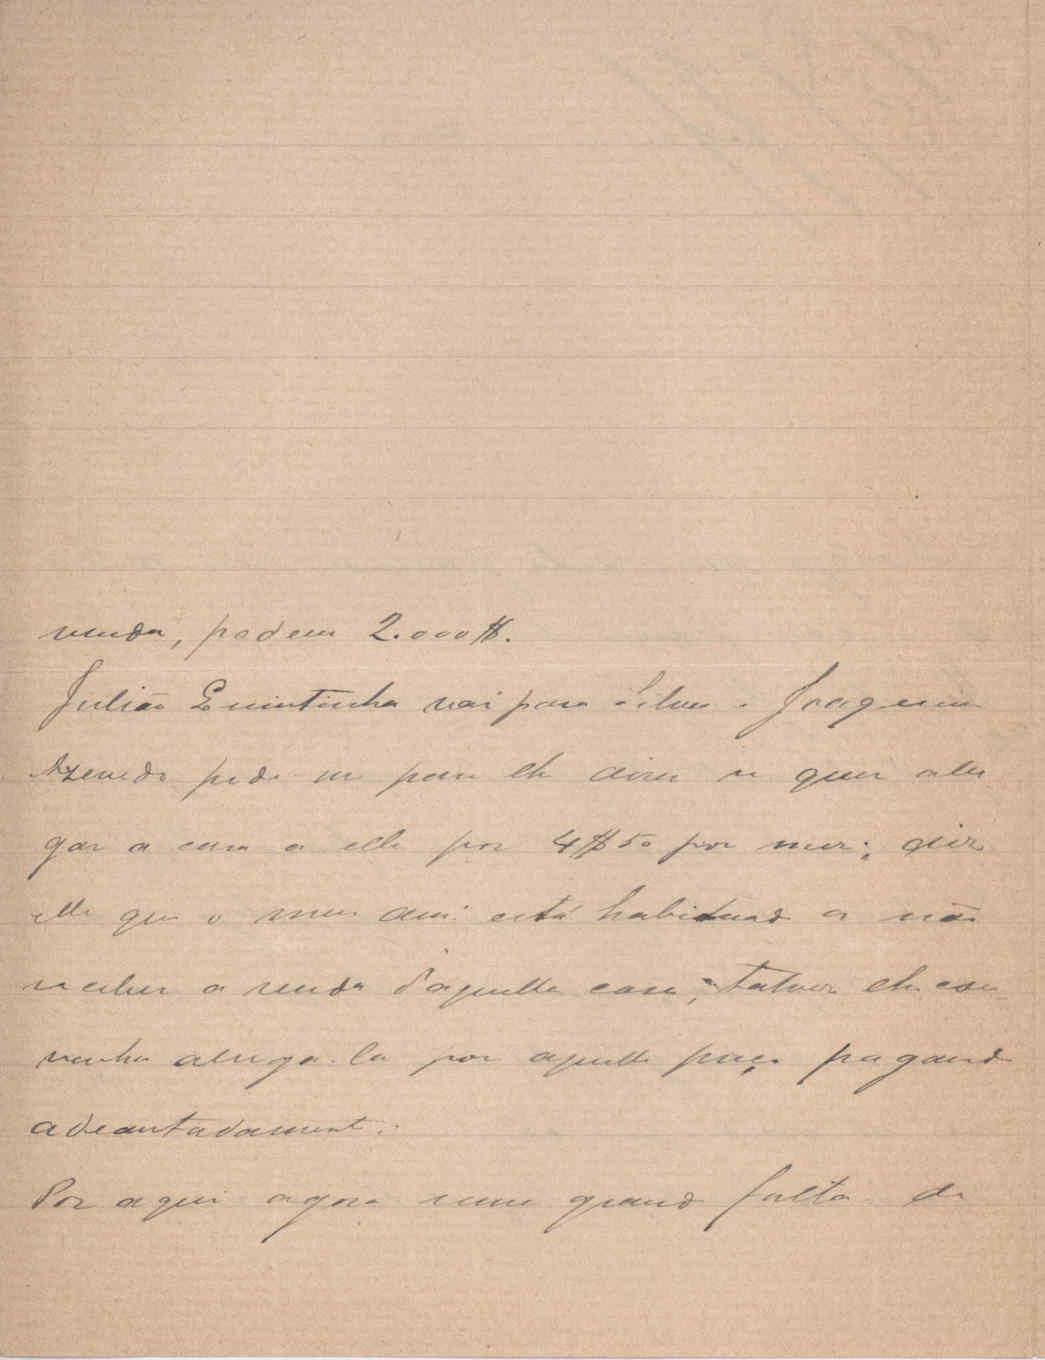 venda, pedem 2.000$.
Julião Quintinha vai para Silves e Joaquim
Azevedo pede me para lhe dizer se quer alu
gar a casa a elle por 4$50 por mez; diz
elle que o meu está habituado a não
receber a renda d'aquella casa; talvez lhe con
venha aluga-la por aquelle preço pagando
adeantadamente.
Por aqui agora uma grande falta de